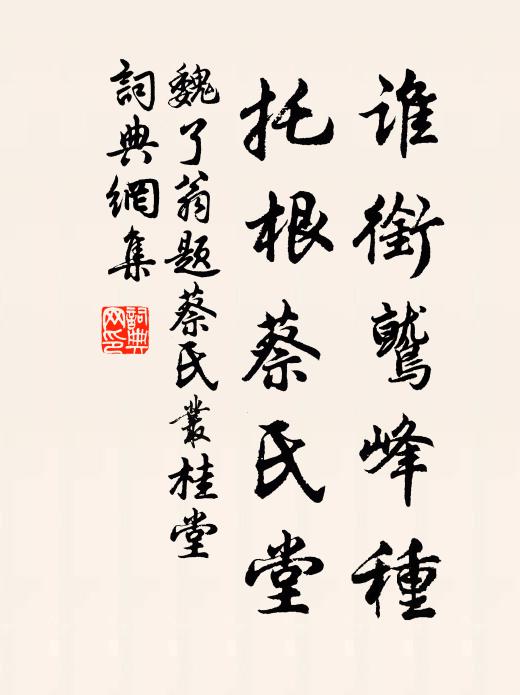 谁銜鷲峰種
托根蔡氏堂
魏了翁题蔡氏叢桂堂
詞典網集
詞典网印